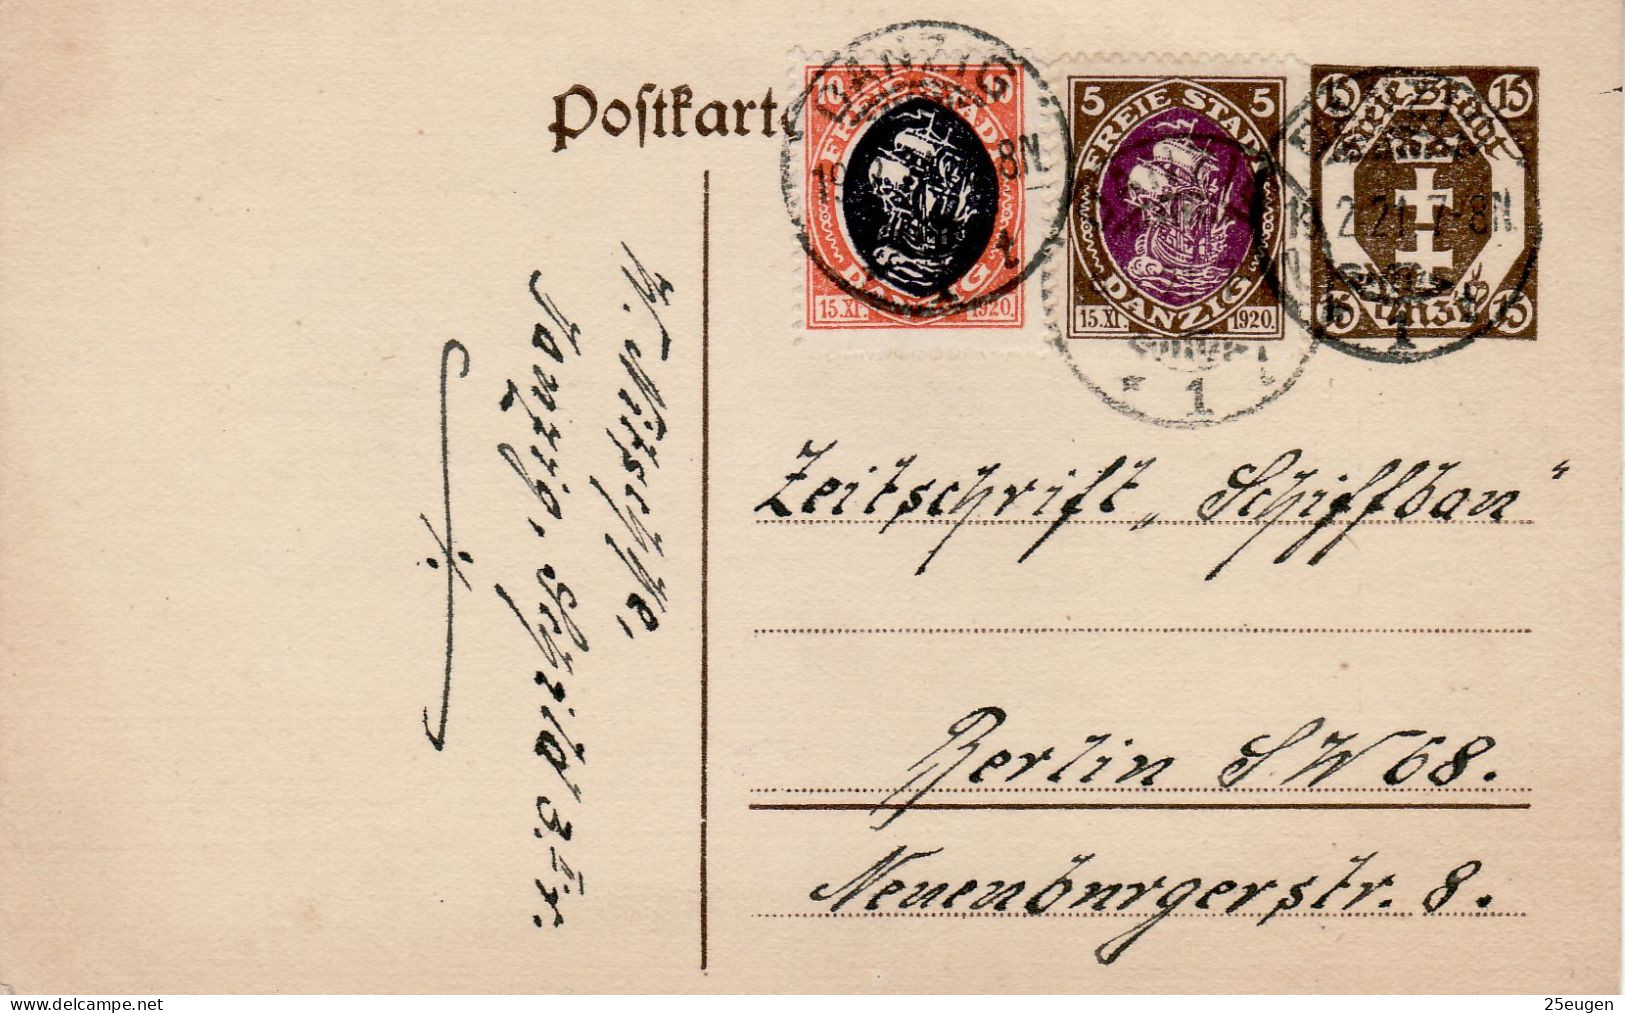 Postkarte
10 10
FREIE STADT
DANZIG
15.XI. 1920.
5 5
FREIE STADT
DANZIG
15.XI. 1920.
15 15
Freie Stadt
Danzig
15 15
DANZIG
8N
1 t
* 1 t
19.2.21.7-8N
* 1
Zeitschrift „Schiffbau“
Berlin SW 68.
Neuenburgerstr. 8.
W. Nitschke,
Danzig, Schild 3. II r.
25eugen